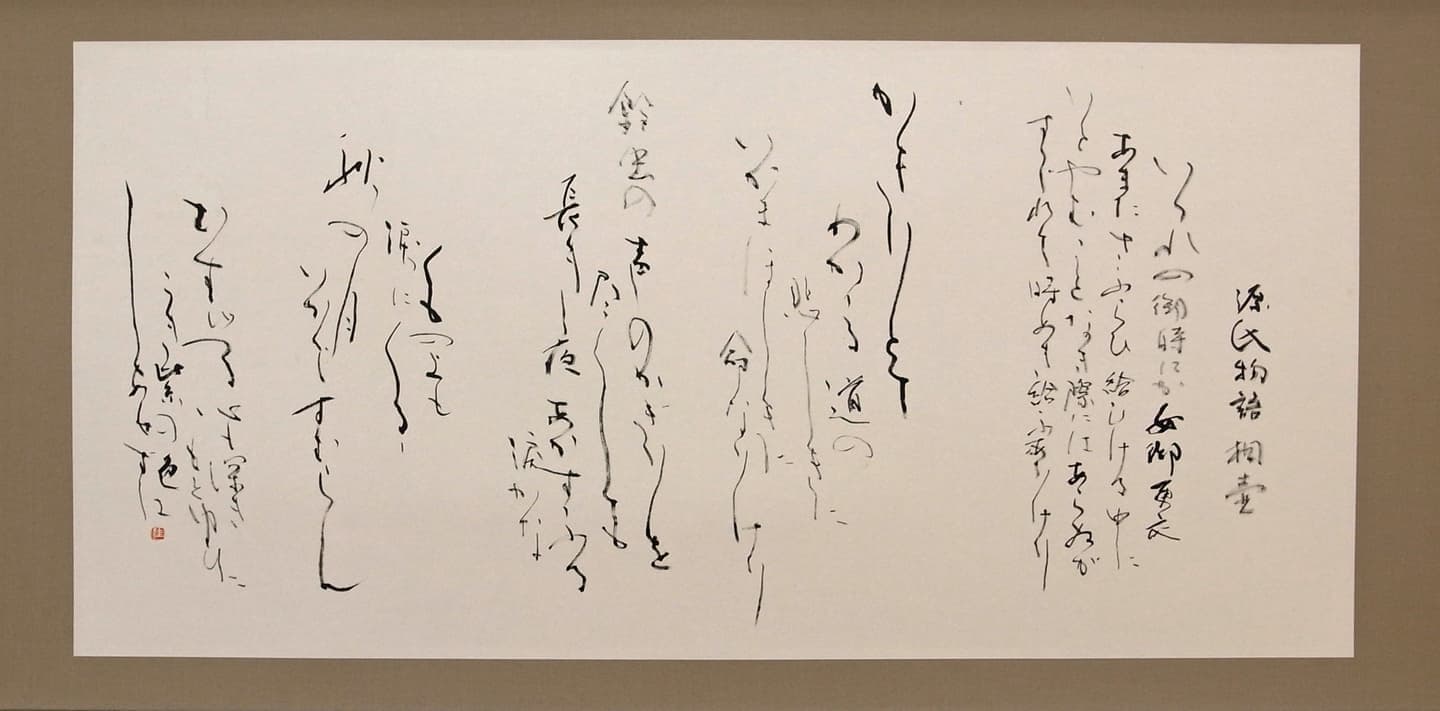 源氏物語 桐壷
いづれの御時にか女御更衣
あまたさふらひ給ひける中に
いとやむごとなき際にはあらぬが
すぐれて時めき給ふありけり
かぎりとて
わかるる道の
悲しきに
いかまほしきは
命なりけり
鈴虫の声のかぎりを
尽くしても
長き夜あかずふる
涙かな
くものうへも
涙にくるる
秋の月
いかですむらん
むすびつる心も深き
もとゆひに
こき紫の色し
あせずは